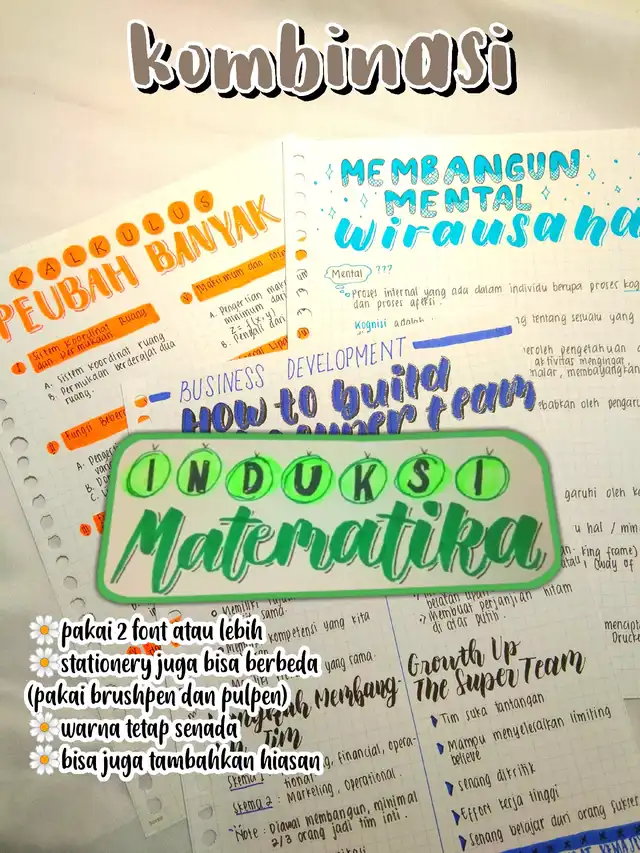 kombinasi
KALKULUS
PEUBAH BANYAK
I Sistem Koordinat Ruang
dan Permukaan
A. Sistem koordinat ruang
B. Permukaan berderajat dua
ruang.
V Maksimum dan
A. Pengertian
minimum dari
Z = f(x,y)
B. Pengali dari
II Fungsi
MEMBANGUN
MENTAL
wirausaha
Mental ???
Proses internal yang ada dalam individu berupa proses
dan proses afeksi.
Kognisi adalah
ng tentang sesuatu yang
eroleh pengetahuan
aktivitas mengingat,
nalar, membayangkan
ebabkan oleh pengaru
garuhi oleh
u hal / min
King frame)
atau
BUSINESS DEVELOPMENT
How to build
super team
INDUKSI
Matematika
Memiliki
sama.
kompetensi yang kita
yang sama.
Membang-
Tim
financial, opera-
Skema 1
tional
Skema 2 : Marketing, operational.
Note : Diawal membangun, minimal
2/3 orang jadi tim inti.
Membuat perjanjian hitam
di atas putih.
Growth Up
The Super Team
Tim suka tantangan
Mampu menyelesaikan limiting
believe
senang dikritik
Effort kerja tinggi
Senang belajar dari orang sukses
pakai 2 font atau lebih
stationery juga bisa berbeda
(pakai brushpen dan pulpen)
warna tetap senada
bisa juga tambahkan hiasan